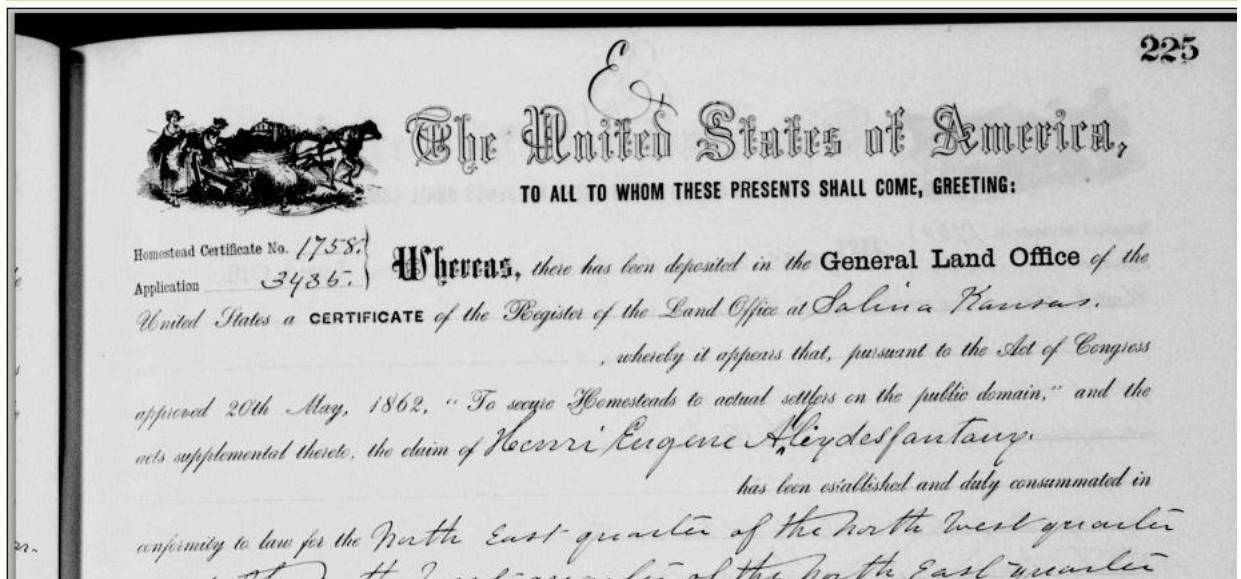 225
E
The United States of America,
TO ALL TO WHOM THESE PRESENTS SHALL COME, GREETING:
Homestead Certificate No. 1758.
Application 3435.
Whereas, there has been deposited in the General Land Office of the
United States a CERTIFICATE of the Register of the Land Office at Salina Kansas.
, whereby it appears that, pursuant to the Act of Congress
approved 20th May, 1862, "To secure Homesteads to actual settlers on the public domain," and the
acts supplemental thereto, the claim of Henri Eugene
has been established and duly consummated in
conformity to law for the North East quarter of the North West quarter
quarter of the North East quarter